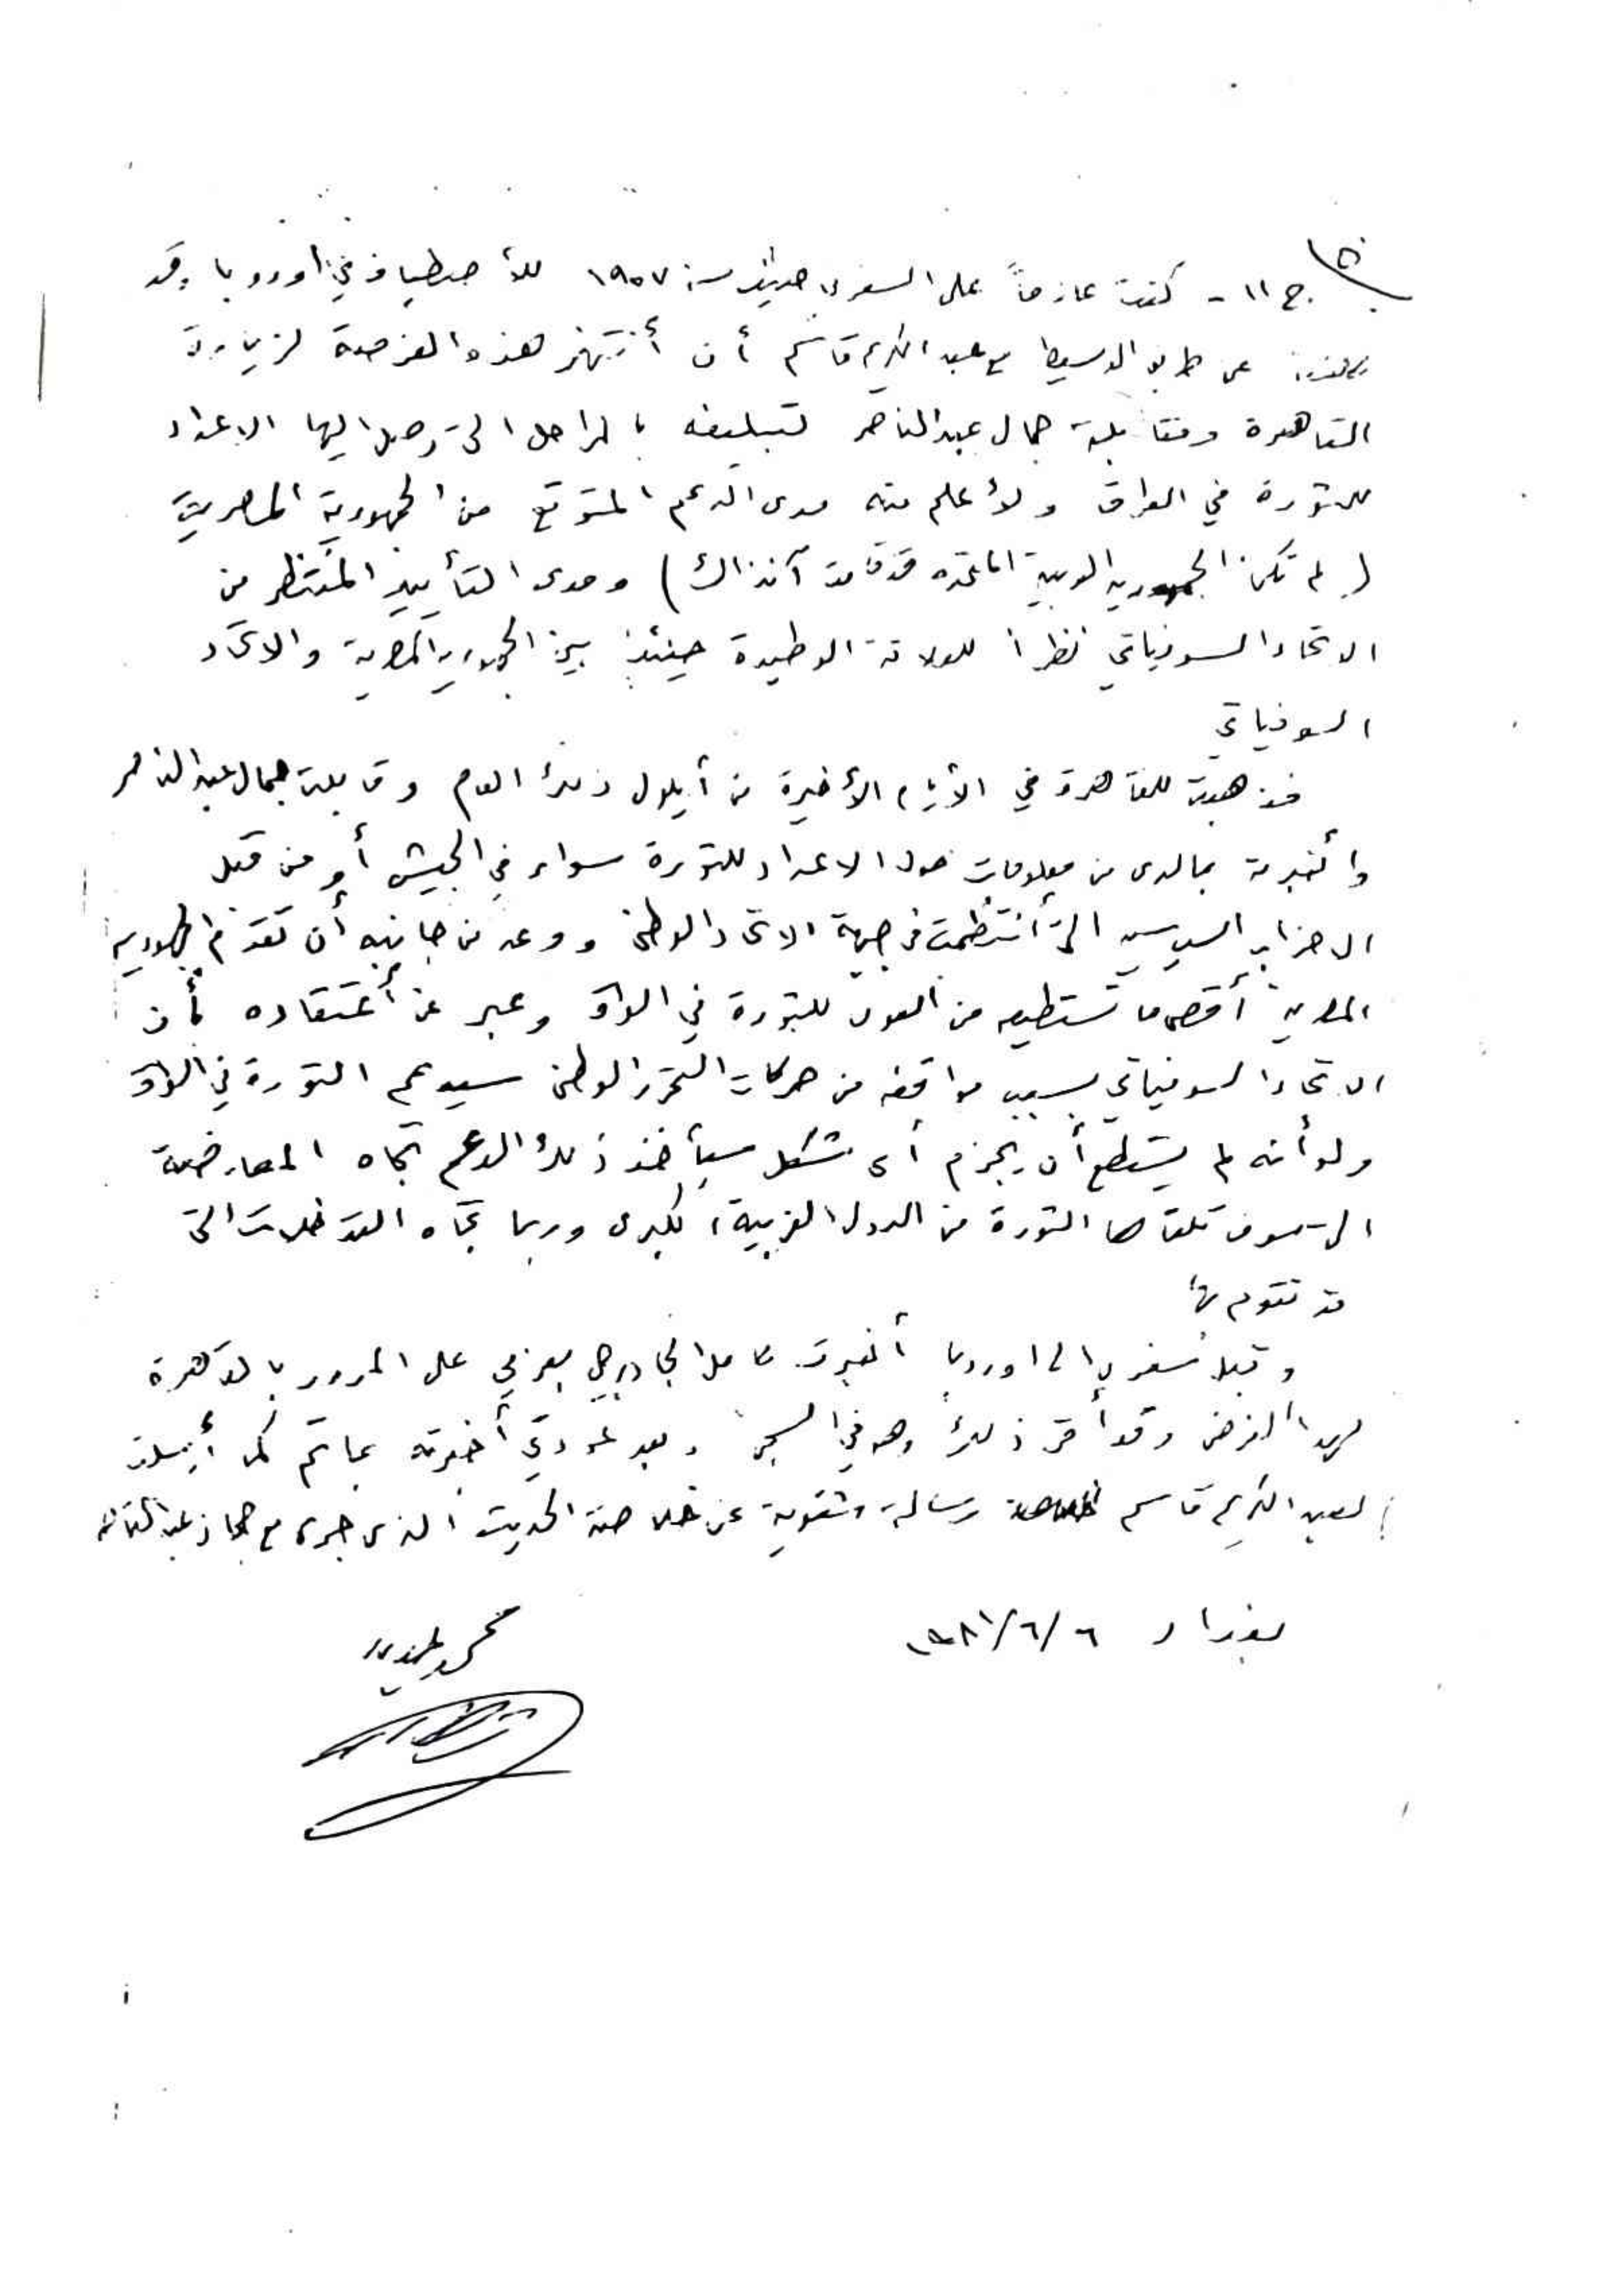 ج ١١ - كنت عازماً على السفر في صيف سنة ١٩٥٧ للأصطياف في اوروبا وقد
عن طريق الوسيط مع عبد الكريم قاسم أن أنتهز هذه الفرصة لزيارة
القاهرة ومقابلة جمال عبد الناصر لتبليغه بالمراحل التي وصل اليها الاعداد
للثورة في العراق ولأعلم منه مدى الدعم المتوقع من الجمهورية المصرية
( لم تكن الجمهورية العربية المتحدة قد قامت آنذاك ) ومدى التأييد المنتظر من
الاتحاد السوفياتي نظراً للعلاقة الوطيدة حينئذ بين الجمهورية المصرية والاتحاد
السوفياتي
فذهبت للقاهرة في الأيام الأخيرة من أيلول ذلك العام وقابلت جمال عبد الناصر
وأخبرته بما لدي من معلومات حول الاعداد للثورة سواء في الجيش أو من قبل
الاحزاب السياسية التي أنتظمت في جبهة الاتحاد الوطني ووعد من جانبه أن تقدم الجمهورية
المصرية أقصى ما تستطيعه من العون للثورة في العراق وعبر عن أعتقاده بأن
الاتحاد السوفياتي بسبب مواقفه من حركات التحرر الوطني سيدعم الثورة في العراق
ولو أنه لم يستطع أن يجزم أي شكل سيأخذ ذلك الدعم تجاه المعارضة
التي سوف تلقاها الثورة من الدول الغربية الكبرى وربما تجاه التدخلات التي
قد تقوم بها
وقبل سفري الى اوروبا أخبرت كامل الجادرجي بعزمي على المرور بالقاهرة
لهذا الغرض وقد أقر ذلك وهو في السجن وبعد عودتي أخبرته بما تم كما أرسلت
لعبد الكريم قاسم رسالة شفوية عن خلاصة الحديث الذي جرى مع جمال عبد الناصر
بغداد ٦/٦/١٩٨١
محمد حديد